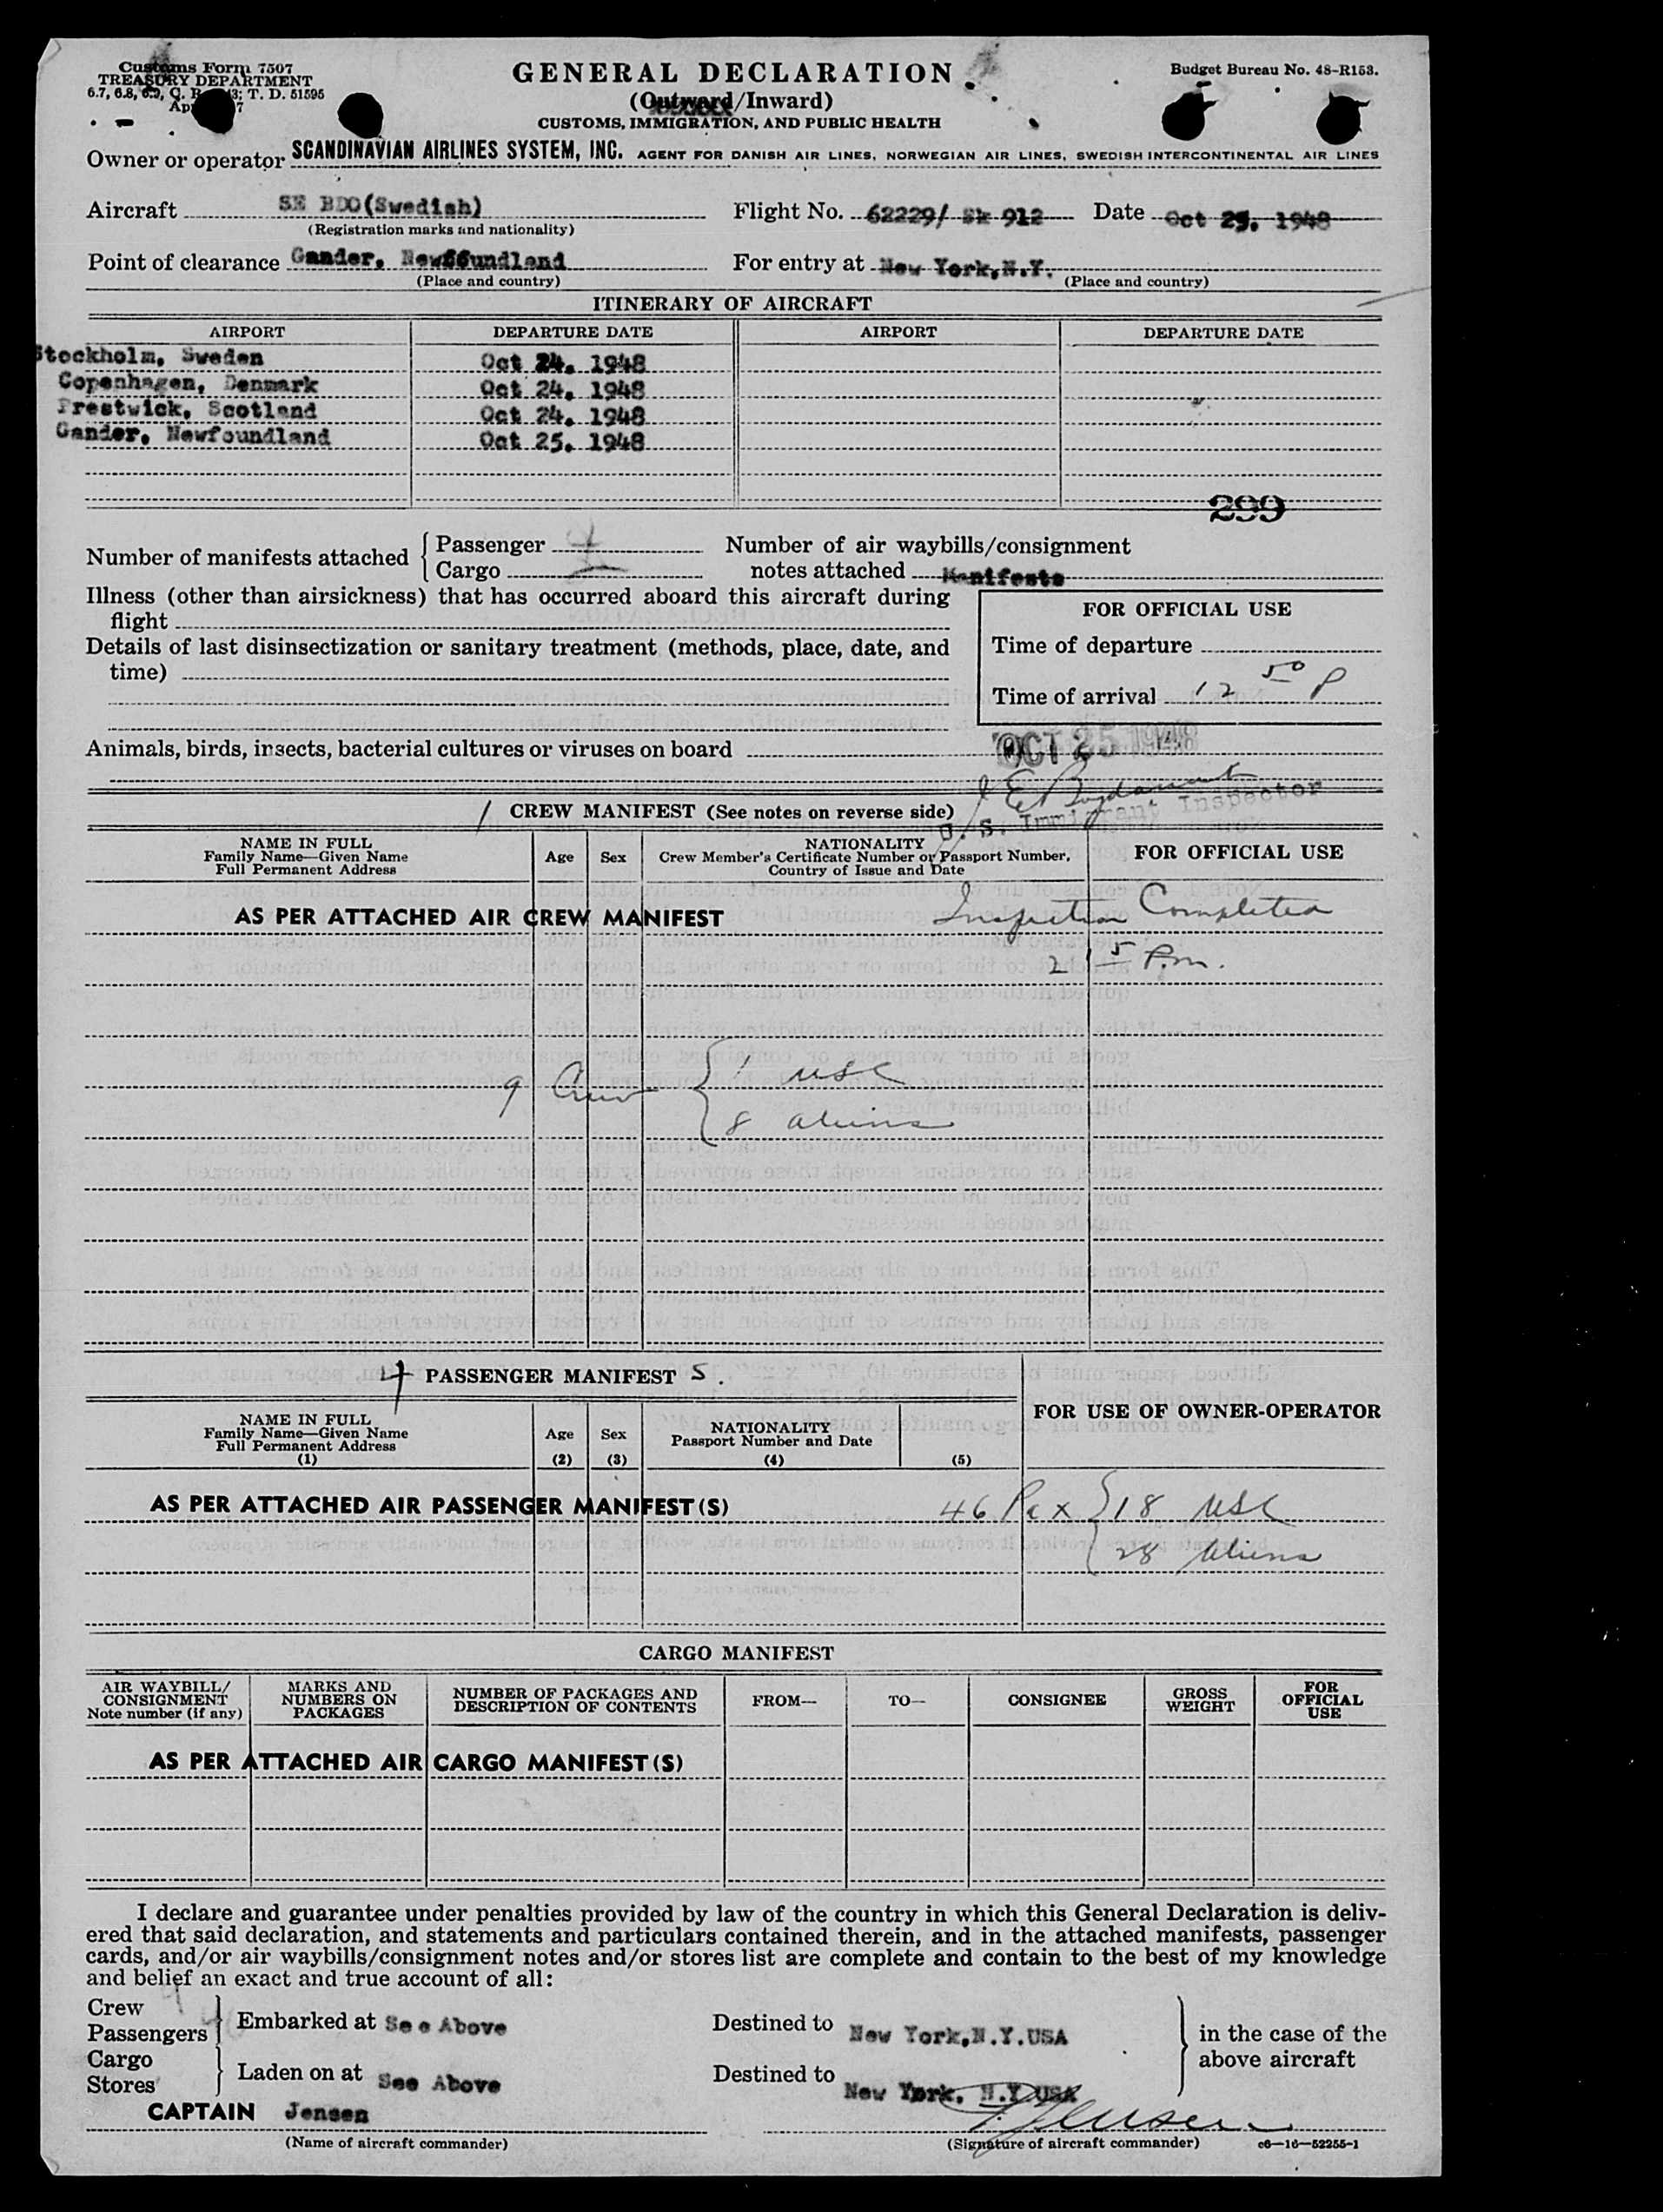 Customs Form 7507
TREASURY DEPARTMENT
6.7, 6.8, 6.9, C. R. 43; T. D. 51595
GENERAL DECLARATION
(Outward/Inward)
CUSTOMS, IMMIGRATION, AND PUBLIC HEALTH
Budget Bureau No. 48-R153.
Owner or operator SCANDINAVIAN AIRLINES SYSTEM, INC. AGENT FOR DANISH AIR LINES, NORWEGIAN AIR LINES, SWEDISH INTERCONTINENTAL AIR LINES
Aircraft SE BDO(Swedish) Flight No. 62229/ Sk 912 Date Oct 25, 1948
(Registration marks and nationality)
Point of clearance Gander, Newffundland For entry at New York,N.Y.
(Place and country) (Place and country)
ITINERARY OF AIRCRAFT
AIRPORT DEPARTURE DATE AIRPORT DEPARTURE DATE
Stockholm, Sweden Oct 24, 1948
Copenhagen, Denmark Oct 24, 1948
Prestwick, Scotland Oct 24, 1948
Gander, Newfoundland Oct 25, 1948
299
Number of manifests attached { Passenger 4 Number of air waybills/consignment
Cargo — notes attached Manifests
Illness (other than airsickness) that has occurred aboard this aircraft during
flight
Details of last disinsectization or sanitary treatment (methods, place, date, and
time)
FOR OFFICIAL USE
Time of departure
Time of arrival 12 50 P
Animals, birds, insects, bacterial cultures or viruses on board
OCT 25 1948
U. S. Immigrant Inspector
1 CREW MANIFEST (See notes on reverse side)
NAME IN FULL
Family Name—Given Name
Full Permanent Address
Age Sex
NATIONALITY
Crew Member's Certificate Number or Passport Number,
Country of Issue and Date
FOR OFFICIAL USE
AS PER ATTACHED AIR CREW MANIFEST
Inspection Completed
2 15 P.m.
9 Crew { 1 USC
8 aliens
4 PASSENGER MANIFEST S.
NAME IN FULL
Family Name—Given Name
Full Permanent Address
(1)
Age
(2)
Sex
(3)
NATIONALITY
Passport Number and Date
(4)
(5)
FOR USE OF OWNER-OPERATOR
AS PER ATTACHED AIR PASSENGER MANIFEST(S)
46 Pax } 18 USC
28 Aliens
CARGO MANIFEST
AIR WAYBILL/
CONSIGNMENT
Note number (if any)
MARKS AND
NUMBERS ON
PACKAGES
NUMBER OF PACKAGES AND
DESCRIPTION OF CONTENTS
FROM—
TO—
CONSIGNEE
GROSS
WEIGHT
FOR
OFFICIAL
USE
AS PER ATTACHED AIR CARGO MANIFEST(S)
I declare and guarantee under penalties provided by law of the country in which this General Declaration is deliv-
ered that said declaration, and statements and particulars contained therein, and in the attached manifests, passenger
cards, and/or air waybills/consignment notes and/or stores list are complete and contain to the best of my knowledge
and belief an exact and true account of all:
Crew 9
Passengers } Embarked at See Above Destined to New York,N.Y.USA } in the case of the
Cargo above aircraft
Stores } Laden on at See Above Destined to New York, N.Y USA
CAPTAIN Jensen
(Name of aircraft commander) (Signature of aircraft commander) c6—16—52255-1